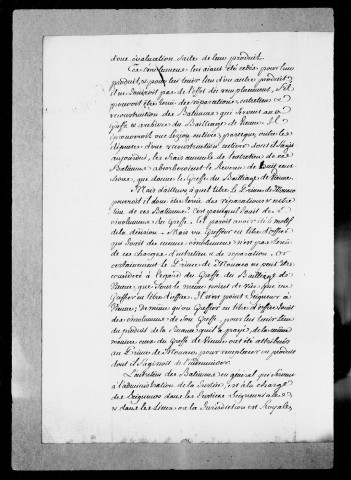 d'une évaluation faite de leur produit.
Ces émolumens lui aiant été cédés pour leur
produit, & pour lui tenir lieu d'un autre produit,
il ne jouiroit pas de l'effet du remplacement, s'il
pouvoit être tenu des réparations, entretien &
reconstruction des Batimens qui servent au
Greffe & archives du Bailliage de Vienne. Il
éprouveroit une lezion entière, parceque, outre les
dépenses d'une reconstruction entière dont il s'agit
aujourdui, les frais annuels de l'entretien de ces
Batimens absorberoient le Revenu de
que donne le Greffe du Bailliage de Vienne.
Mais d'ailleurs à quel titre le Prince de Monaco
pourroit il donc être tenu des réparations & entre
tien de ces Batimens? C'est parcequ'il jouit de ces
émolumens du Greffe. Il paroit avoir été le motif
de la décision. Mais un Greffier en titre d'office
qui jouit des mêmes émolumens n'est pas tenu
de ces charges d'entretien & de réparation, or
certainement le Prince de Monaco ne peut être
considéré à l'égard du Greffe du Bailliage de
Vienne que sous le même point de vue que ce
Greffier en titre d'office. Il n'est point Seigneur à
Vienne; De même qu'un Greffier en titre d'office jouit
des émolumens de son Greffe, pour lui tenir lieu
du produit de la finance qu'il a payée, de la même
manière ceux du Greffe de Vienne ont été attribués
au Prince de Monaco pour remplacer un produit
dont il s'agissoit de l'indemniser.
L'entretien des Batimens en général qui servent
à l'administration de la Justice, est à la charge
des Seigneurs dans les Justices Seigneuriales,
& dans les Lieux où la Jurisdiction est Royale,